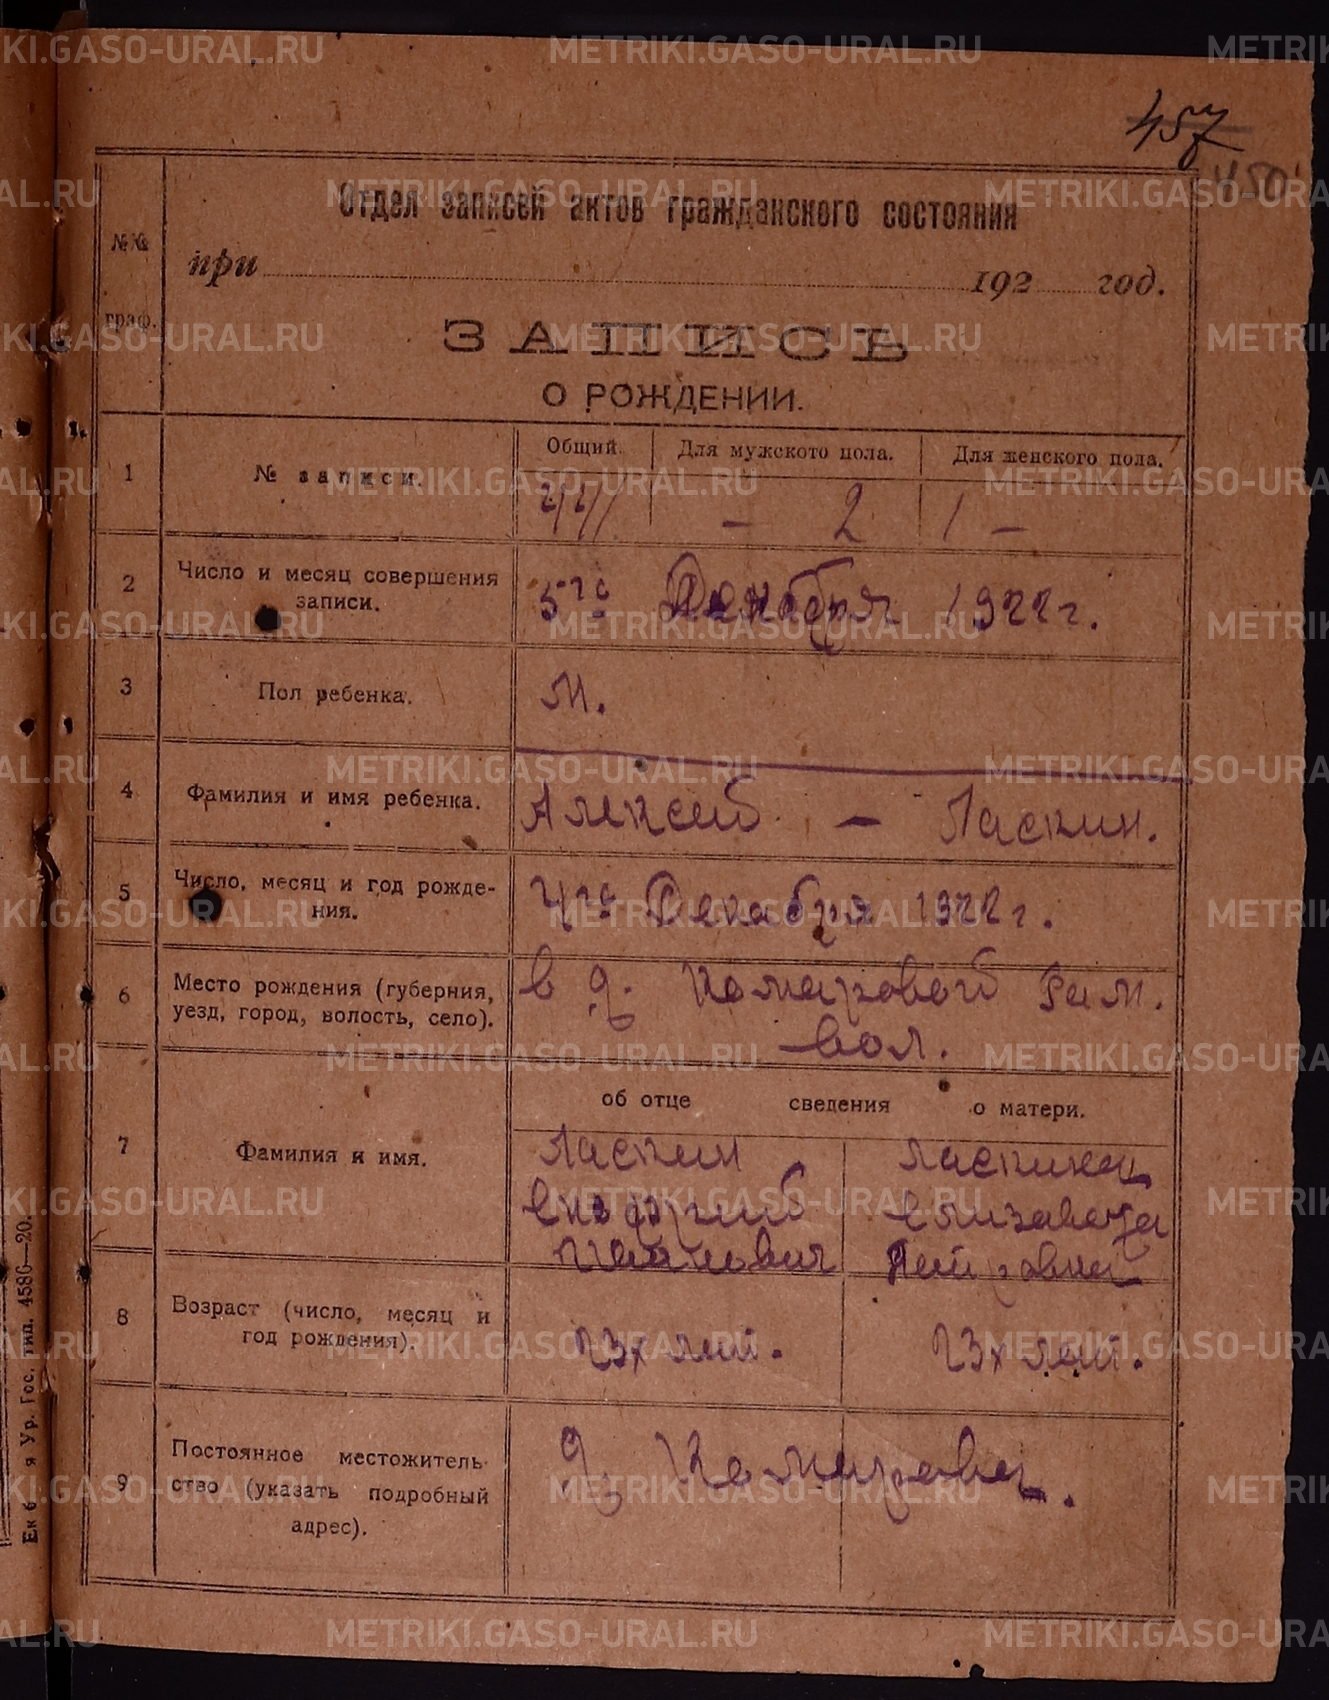 457
450
Отдел записей актов гражданского состояния
№№
граф.
при 192 год.
ЗАПИСЬ
О РОЖДЕНИИ.
Общий. Для мужского пола. Для женского пола.
1 № записи.
– 2 1 –
2 Число и месяц совершения
записи.
5го Декабря 1922 г.
3 Пол ребенка. М.
4 Фамилия и имя ребенка. Алексей – Ласкин.
5 Число, месяц и год рожде-
ния.
4го Декабря 1922 г.
6 Место рождения (губерния,
уезд, город, волость, село).
в д. Комаровой
вол.
об отце сведения о матери.
7 Фамилия и имя.
Ласкин Ласкина
Елизавета
Иванович Петровна
8 Возраст (число, месяц и
год рождения).
23х лет. 23х лет.
9 Постоянное местожитель-
ство (указать подробный
адрес).
д. Комарова.
Ур. Гос. тип. 4586—20.
METRIKI.GASO-URAL.RU